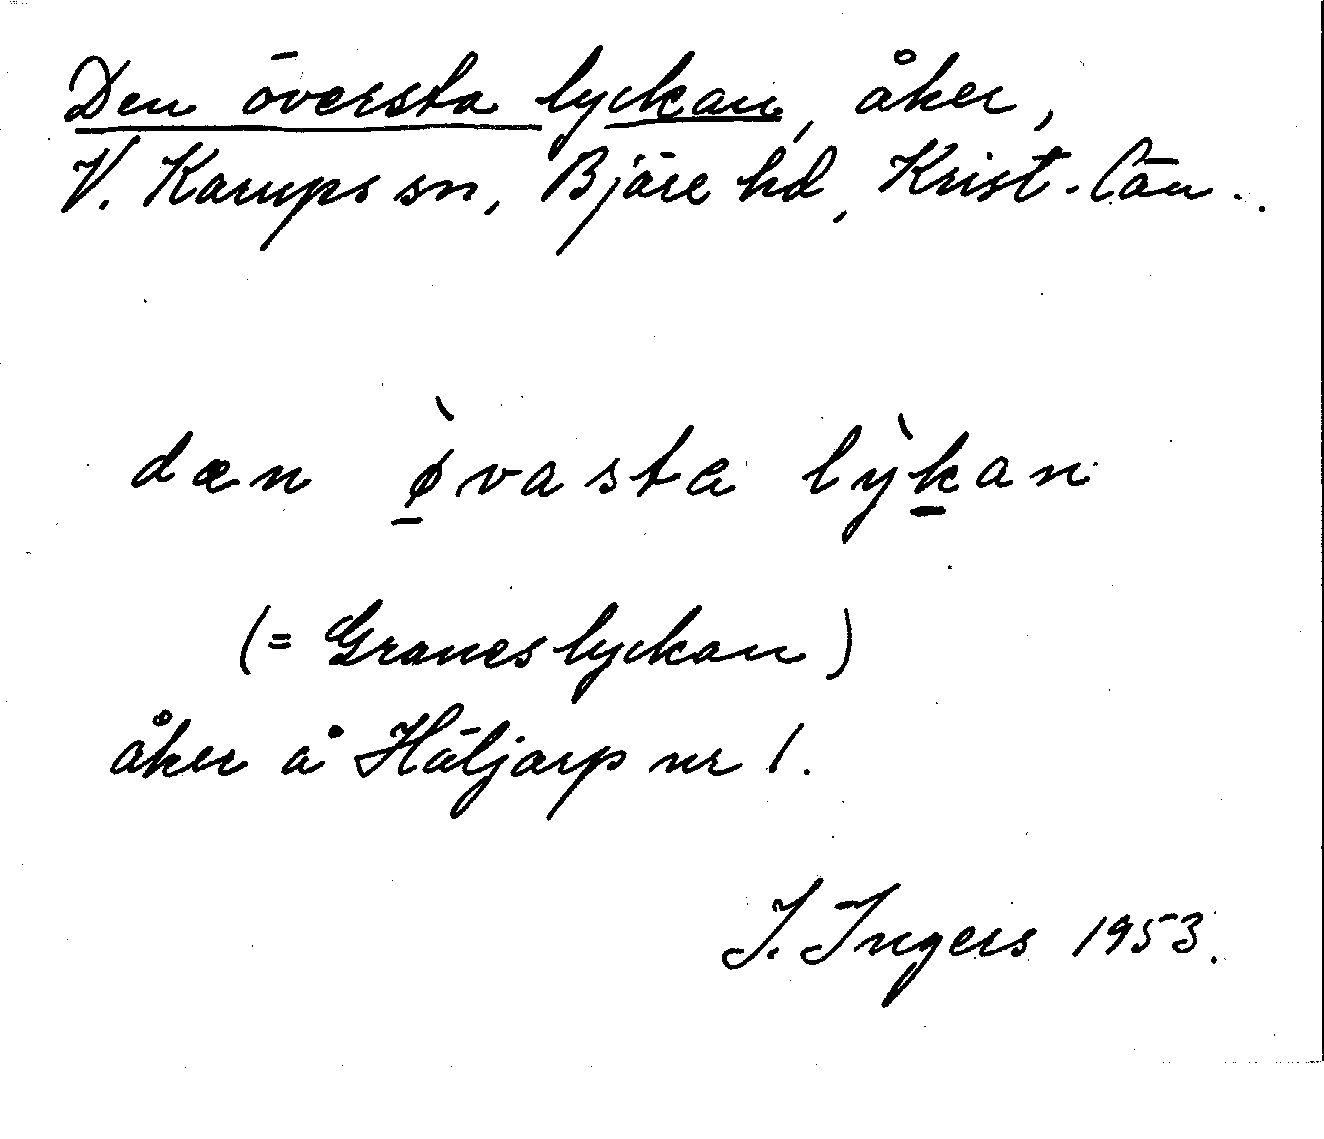 Den översta lyckan, åker,
V. Karups sn, Bjäre hd, Krist. län.
dæn ø̱̀vasta lỳḵan
(= Graneslyckan)
åker å Häljarp nr 1.
I. Ingers 1953.